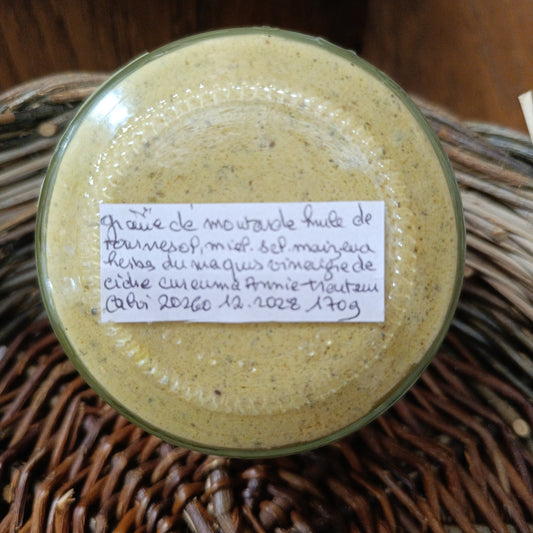 graine de moutarde huile de
tournesol, miel sel maizena
herbes du maquis vinaigre de
cidre curcuma Annie traiteur
Calvi 20260 12.2028 170g